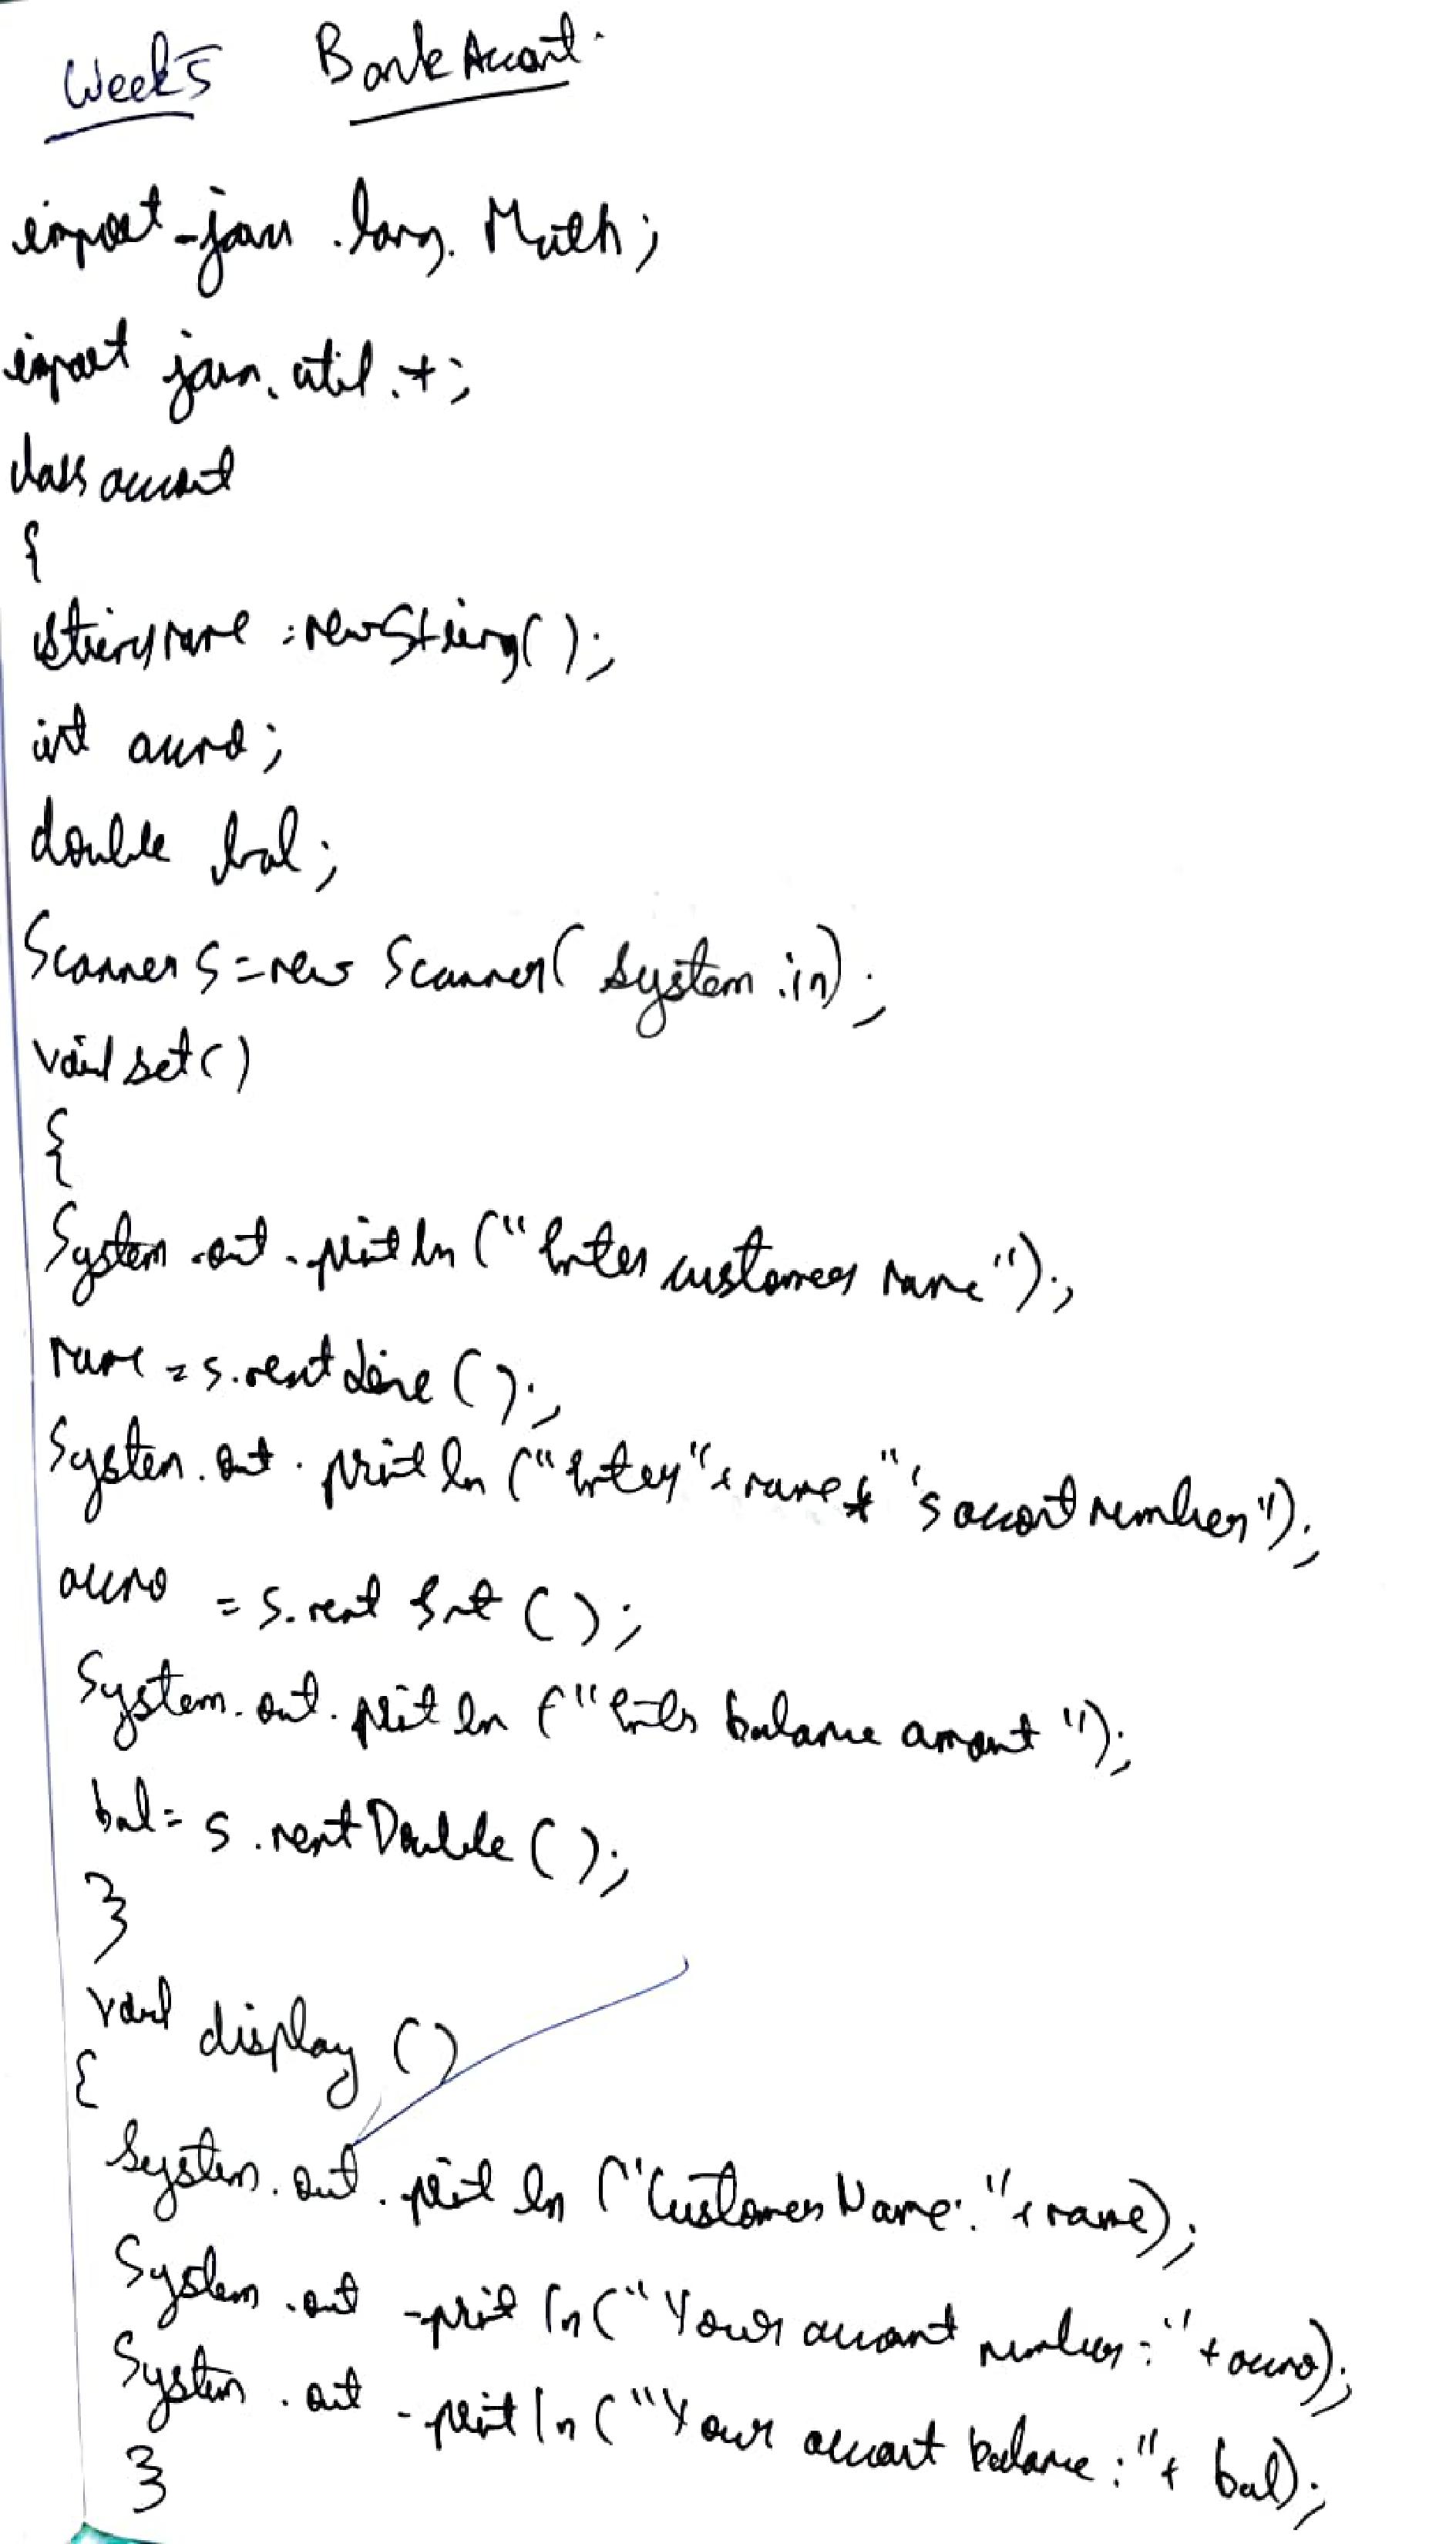 Week5 Bank Account.
import java.lang.Math;
import java.util.*;
class account
{
String name = new String();
int accno;
double bal;
Scanner s = new Scanner(System.in);
void set()
{
System.out.println("Enter customer name");
name = s.nextLine();
System.out.println("Enter"+name+"'s account number");
accno = s.nextInt();
System.out.println("Enter balance amount");
bal = s.nextDouble();
}
void display()
{
System.out.println("Customer Name:"+name);
System.out.println("Your account number:"+accno);
System.out.println("Your account balance:"+bal);
}